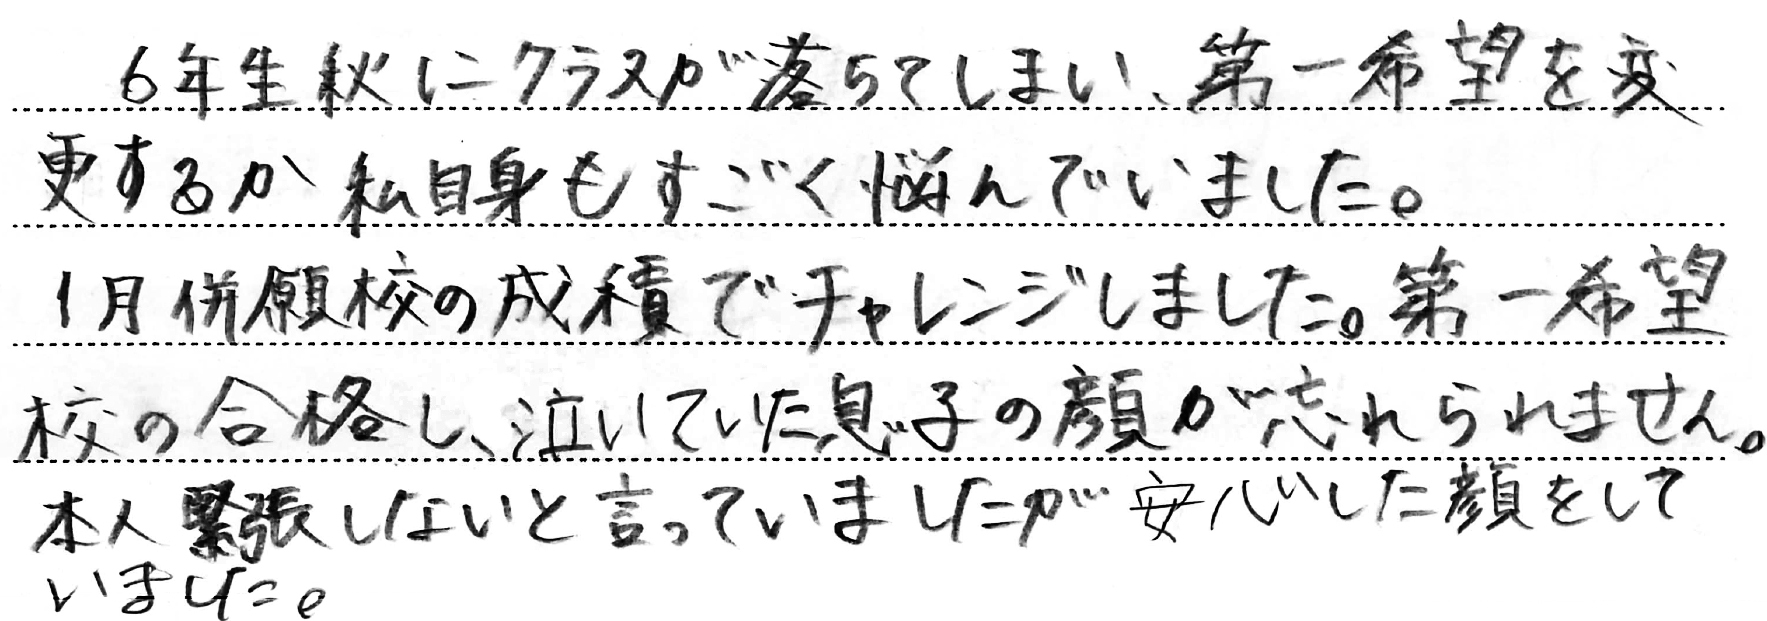 6年生秋にクラスが落ちてしまい、第一希望を変
更するか私自身もすごく悩んでいました。
1月併願校の成積でチャレンジしました。第一希望
校の合格し、泣いていた息子の顔が忘れられません。
本人緊張しないと言っていましたが安心した顔をして
いました。